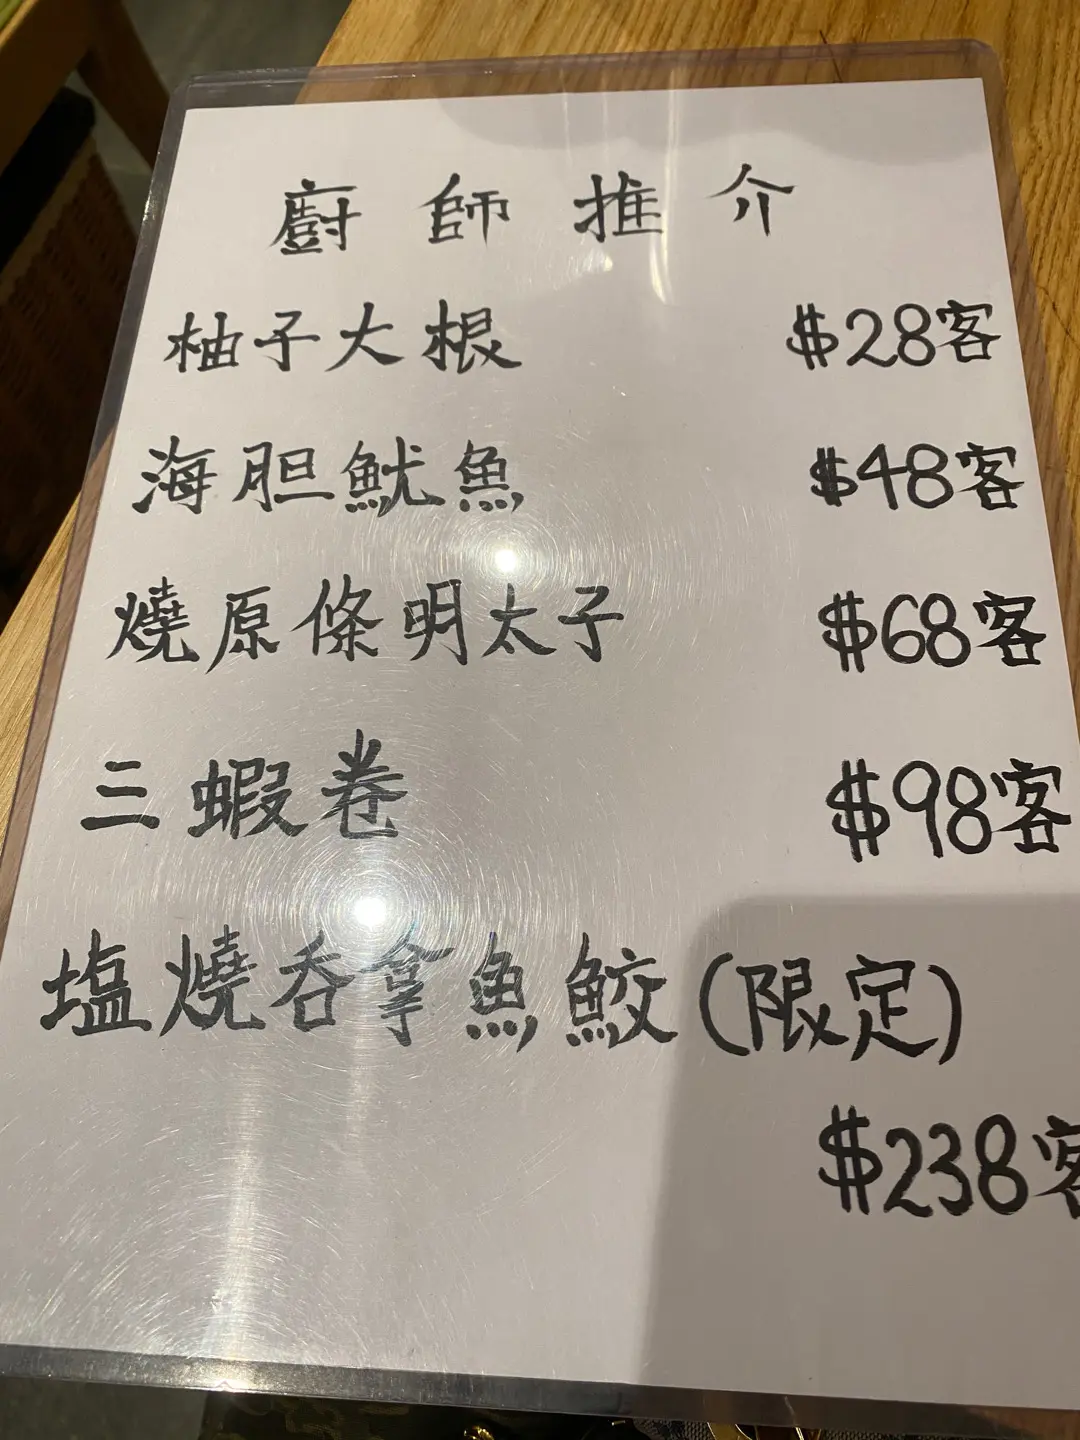 廚師推介
柚子大根 $28客
海胆魷魚 $48客
燒原條明太子 $68客
三蝦卷 $98客
塩燒吞拿魚鮫(限定)
$238客